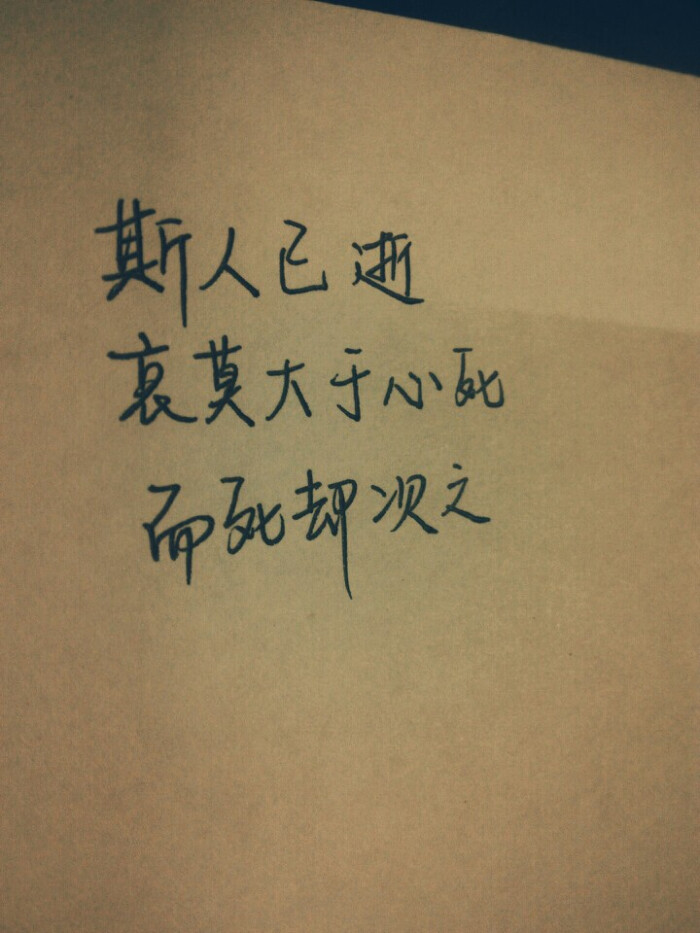 斯人已逝
哀莫大于心死
而死却次之